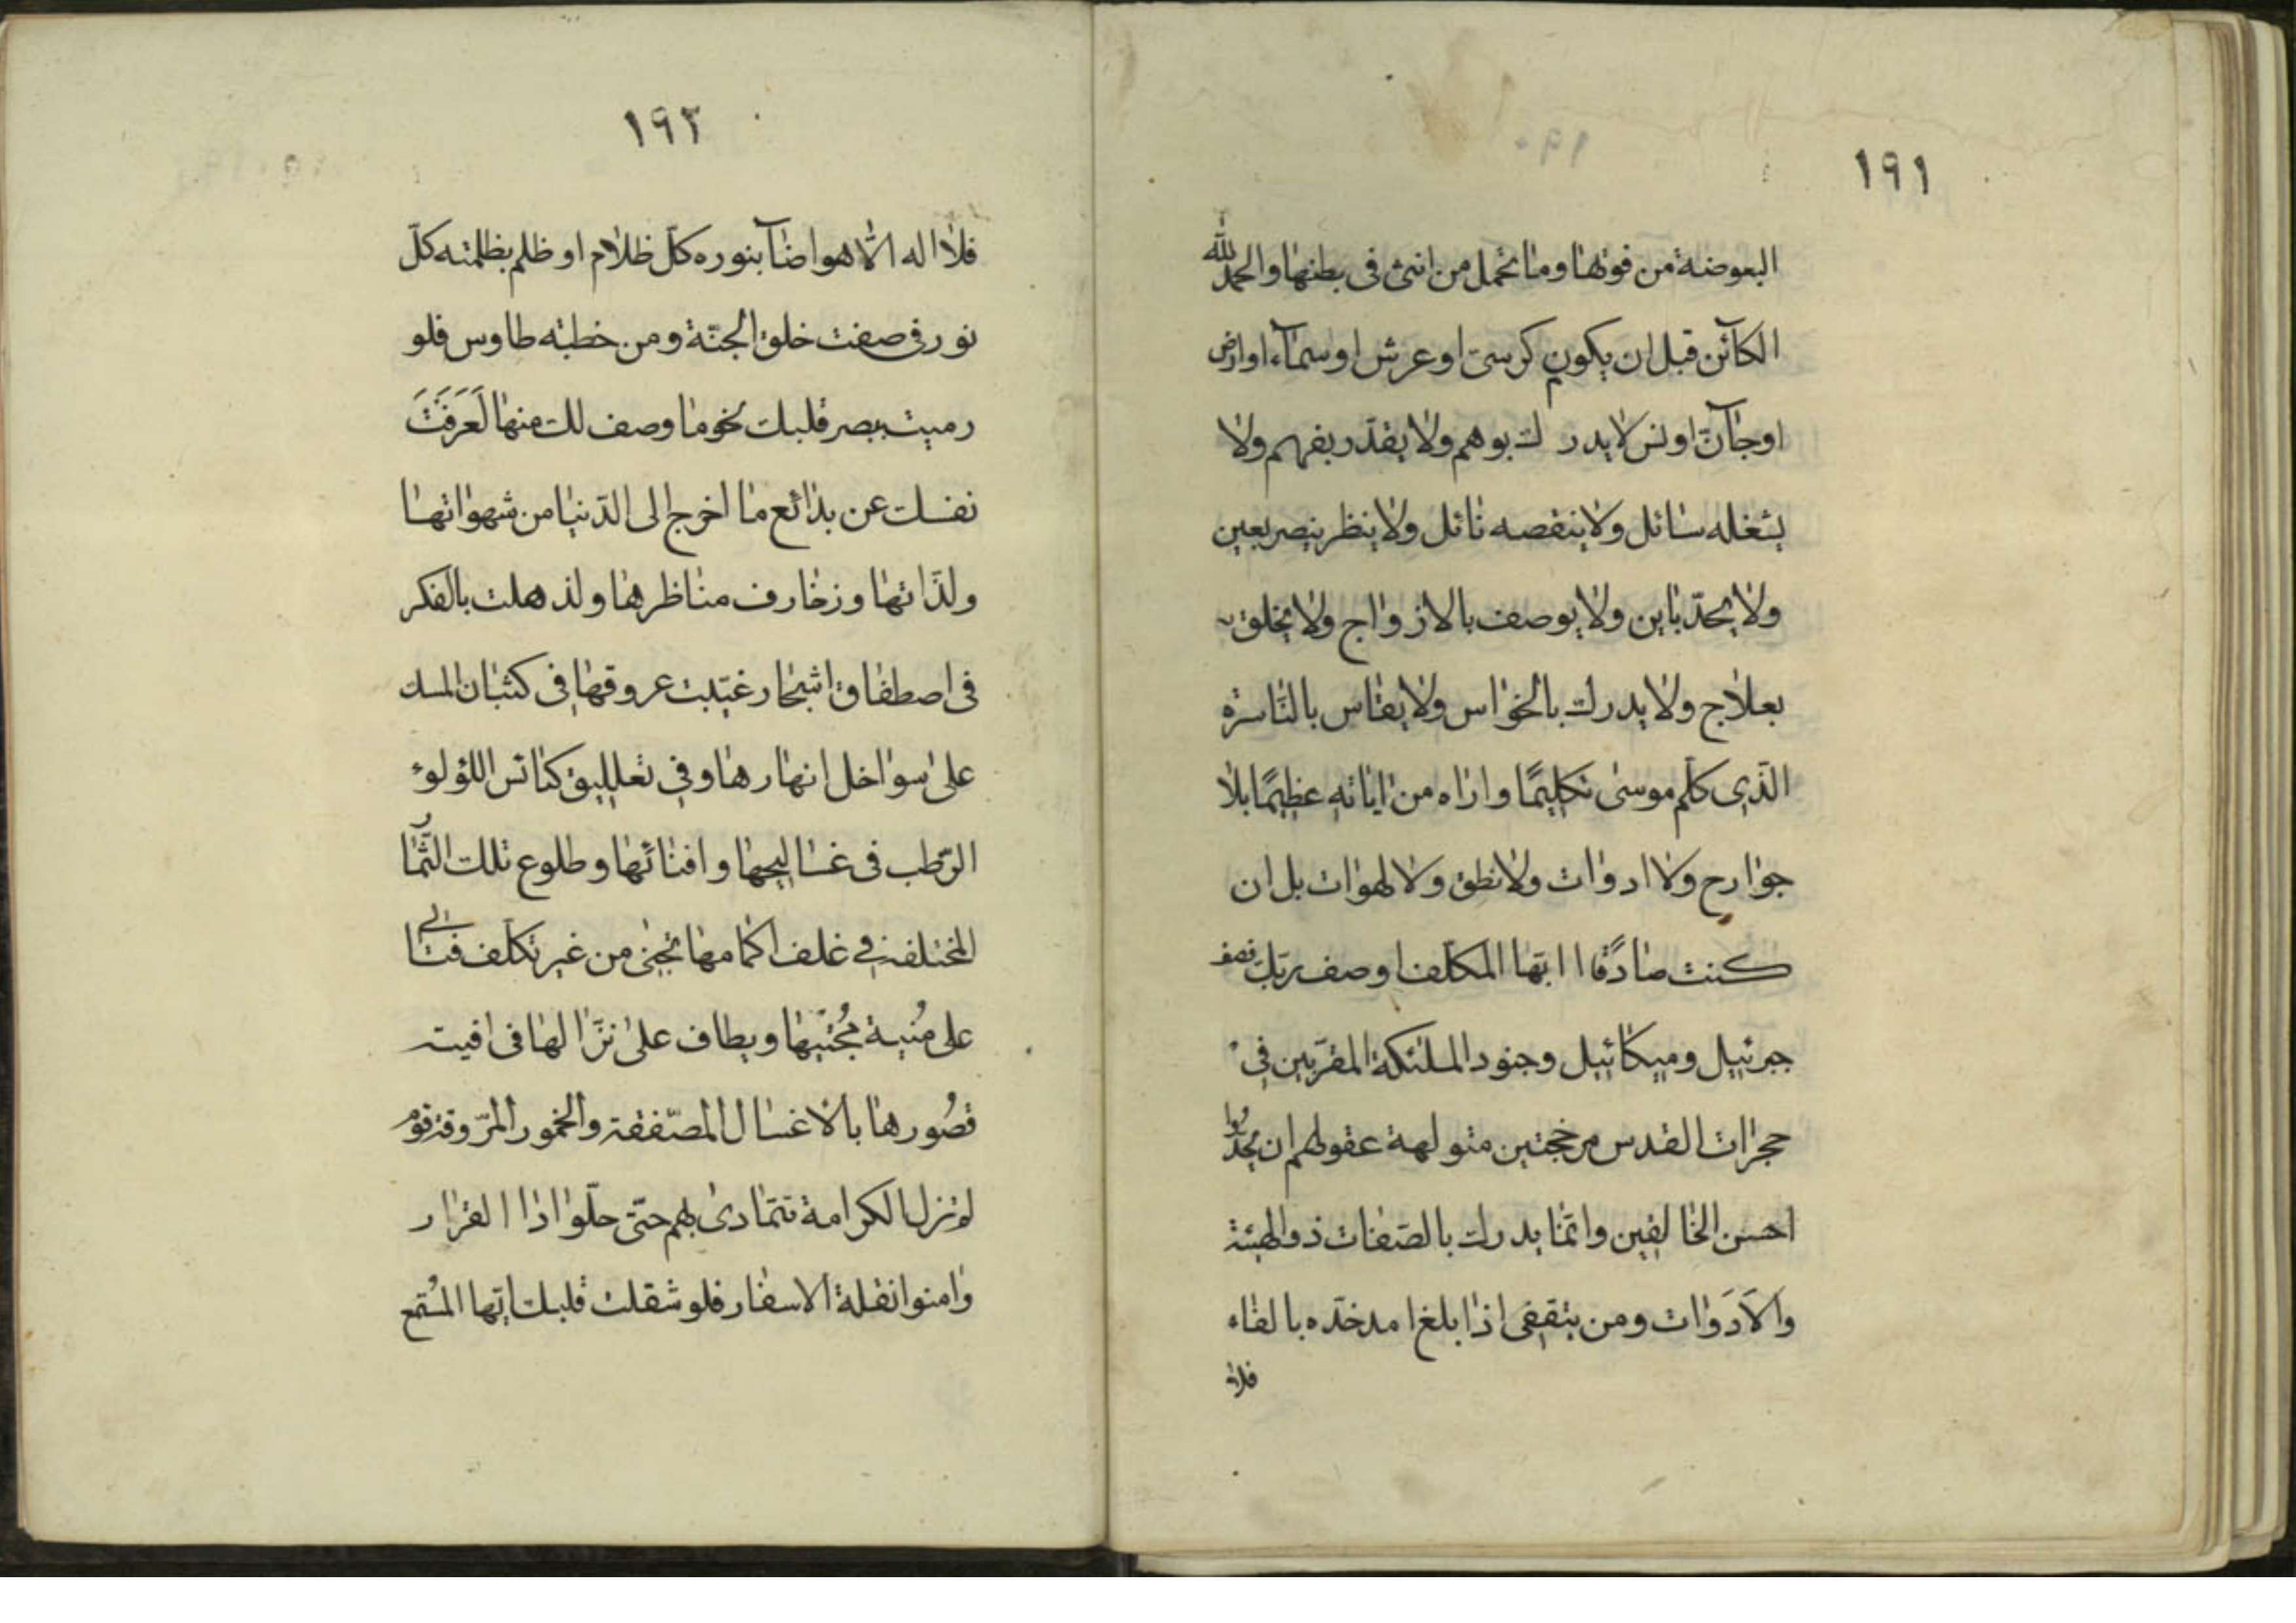 ١٩١
البعوضة من قوتها وما تحمل من انثى فى بطنها والحمد لله
الكآئن قبل ان يكون كرسىّ او عرش او سمآء او ارض
اوجآنّ او انس لا يدرك بوهم ولا يقدّر بفهم ولا
يشغله سائل ولا ينقصه نائل ولا ينظر ببصر بعين
ولا يحدّ باين ولا يوصف بالازواج ولا يخلق
بعلاج ولا يدرك بالحواس ولا يقاس بالنّاس
الّذى كلّم موسى تكليمًا واراه من اياته عظيمًا بلا
جوارح ولا ادوات ولا نطق ولا لهوات بل ان
كنت صادقًا ايّها المكلّف اوصف ربّك فصف
جبرئيل وميكائيل وجنود الملئكة المقرّبين فى
حجرات القدس مرجحنين متولهة عقولهم ان يحدّوا
احسن الخالقين وانّما يدرك بالصّفات ذوالهيئة
والاَدَوات ومن ينقضى اذا بلغ امد حدّه بالفناء
فلا
١٩٢
فلا اله الّا هو اضآ بنوره كلّ ظلام او ظلم بظلمته كلّ
نور فى صفت خلق الجنّة ومن خطبته طاوس فلو
رميت ببصر قلبك نحو ما وصف لك منها لَعَزَفَتَ
نفسك عن بدائع ما اخرج الى الدّنيا من شهواتها
ولذّاتها وزخارف مناظرها ولذهلت بالفكر
فى اصطفاق اشجار غيّبت عروقها فى كثبان المسك
على سواحل انهارها وفى تعليق كبائس اللؤلوء
الرّطب فى عساليجها وافنائها وطلوع تلك الثّمار
المختلفة فى غلف اكمامها تجنى من غير تكلّف فتاتى
على مُنية مُجتنيها ويطاف على نزّالها فى افيت
قصُورها بالاعسال المصّفقة والخمور المرّوقة قوم
لم تزل الكرامة تتمادى بهم حتّى حلّوا ادا القرار
وامنوا نقلة الاسفار فلو شقلت قلبك ايّها المُستمع